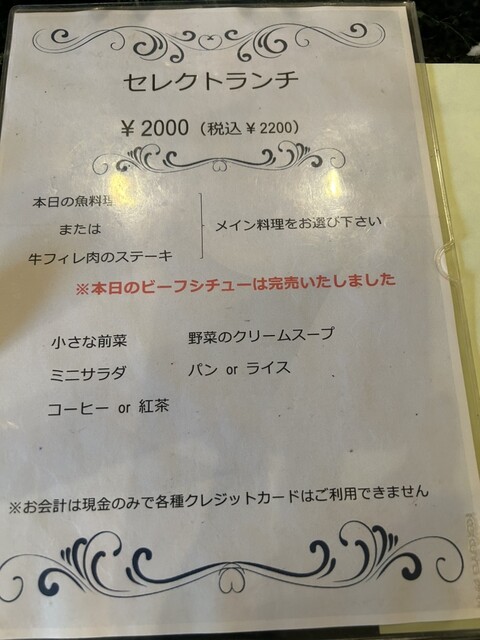 セレクトランチ
¥2000（税込¥2200）
本日の魚料理
または
牛フィレ肉のステーキ
メイン料理をお選び下さい
※本日のビーフシチューは完売いたしました
小さな前菜 野菜のクリームスープ
ミニサラダ パン or ライス
コーヒー or 紅茶
※お会計は現金のみで各種クレジットカードはご利用できません